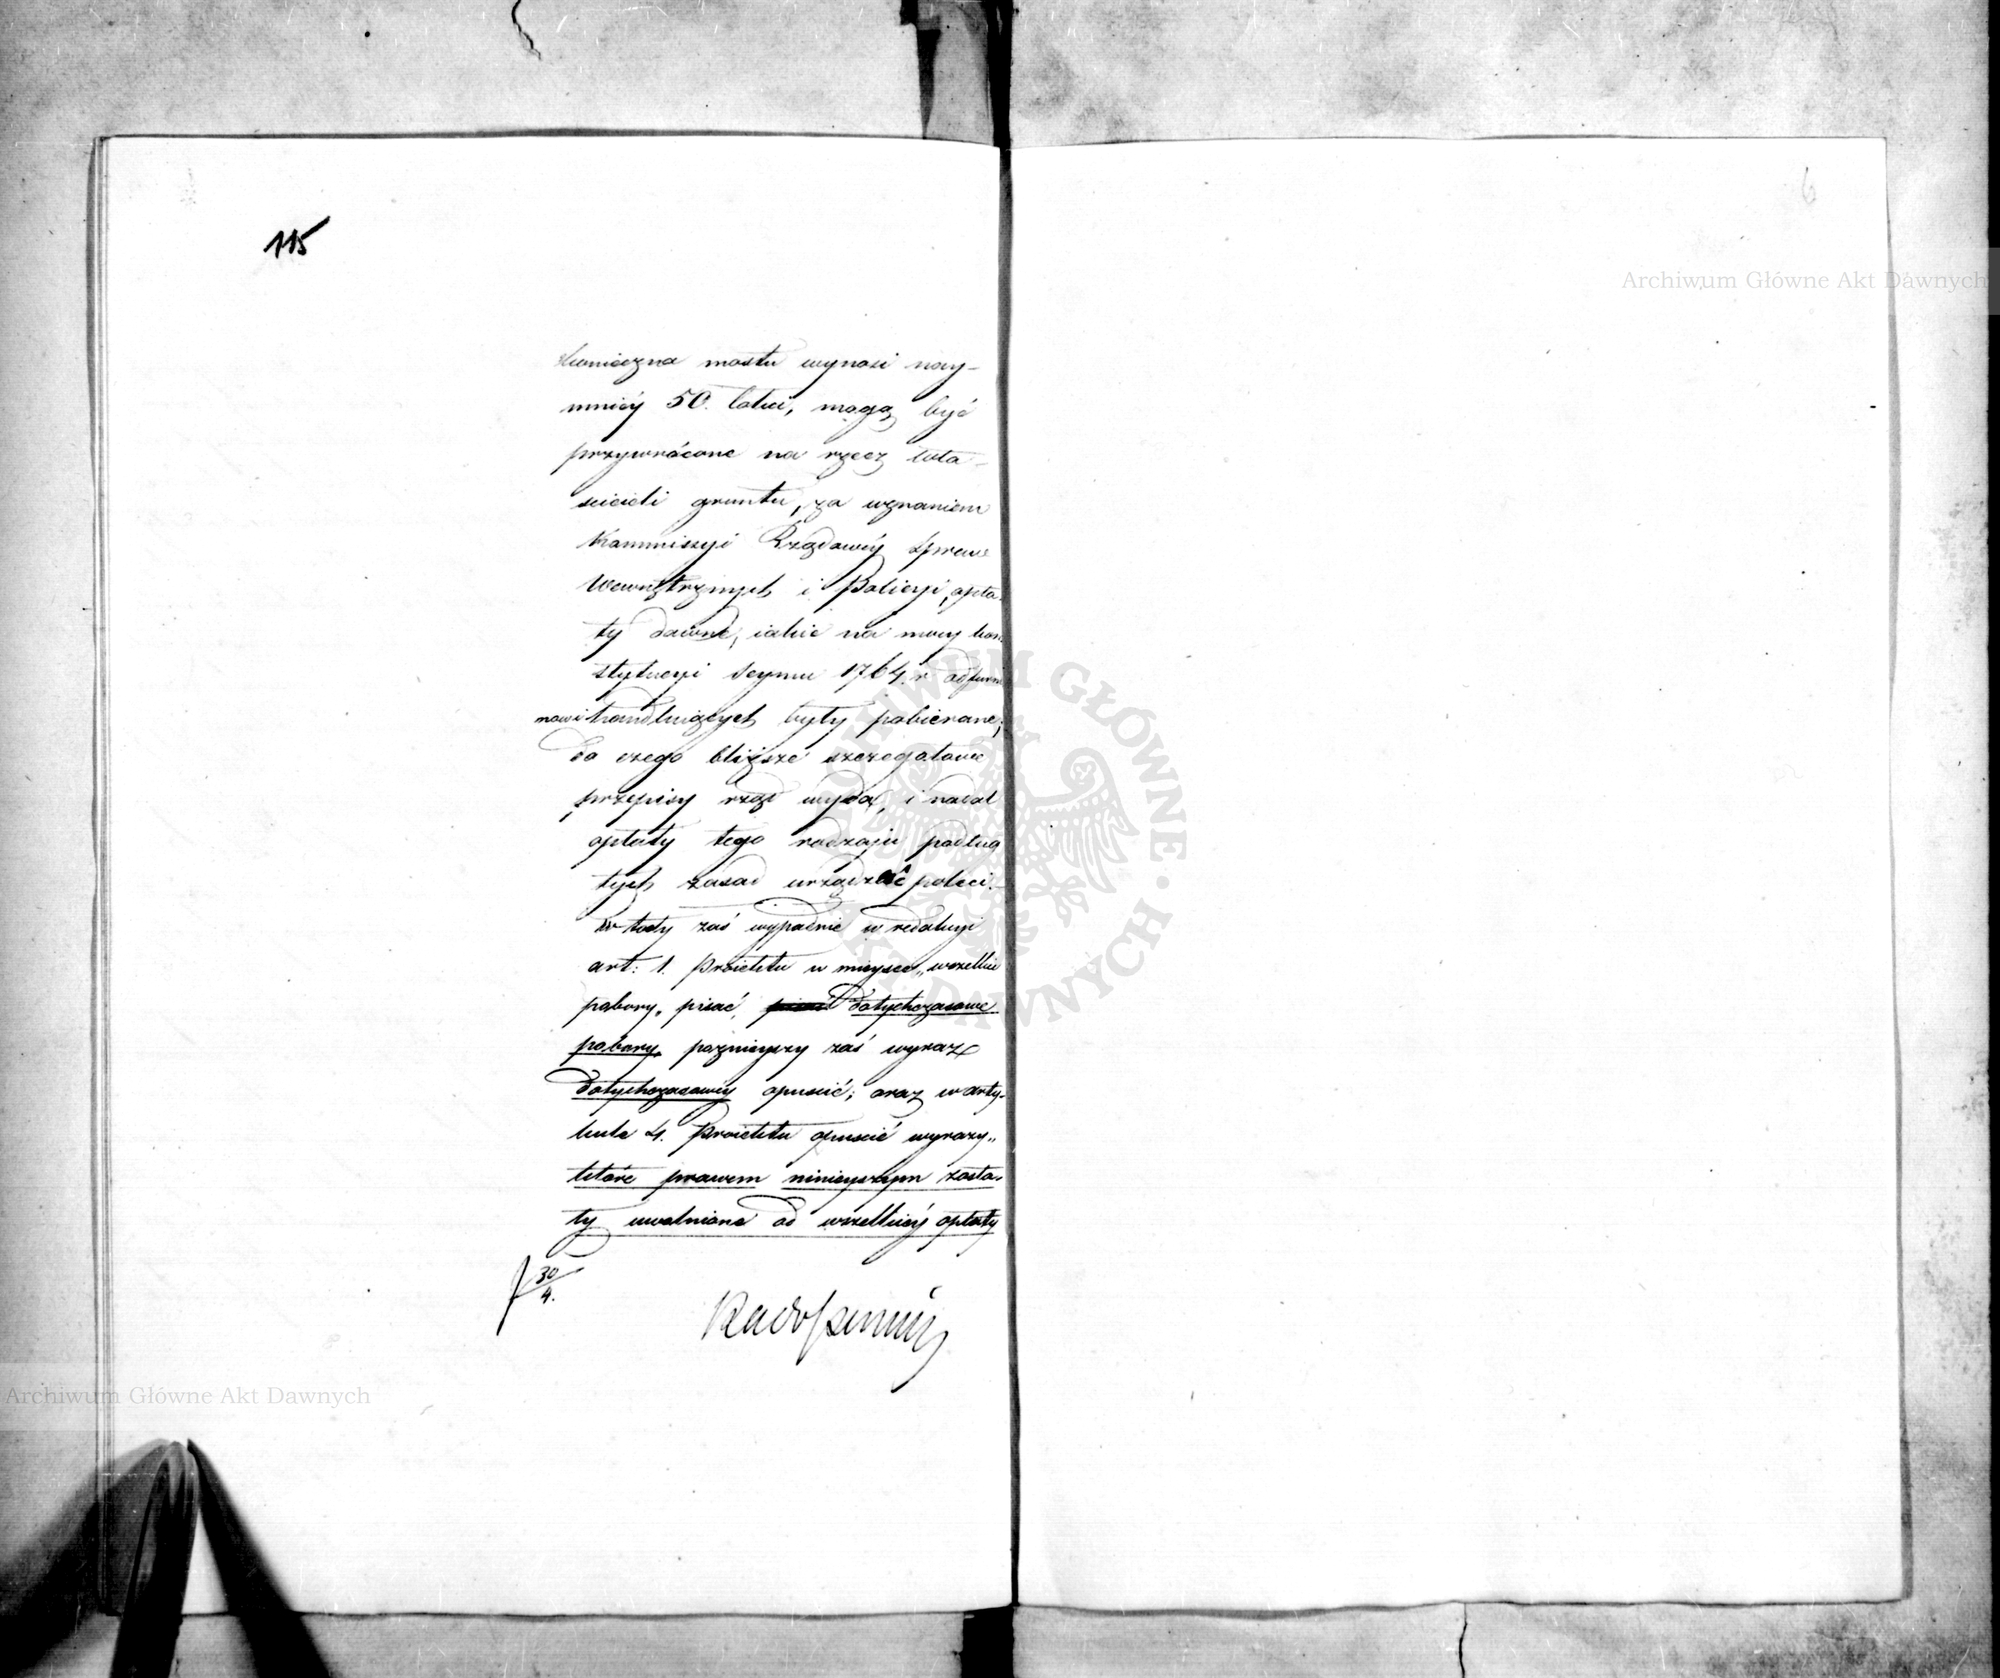 115
konieczna mostu wynosi nay-
mniéy 50. łokci, mogą być
przywrócone na rzecz wła-
scicieli gruntu, za uznaniem
Kommissyi Rządowéy Spraw
Wewnętrznych i Policyi, opła-
ty dawne, iakie na mocy kon-
stytucyi Seymu 1764. r. od furm
now i handluiących były pobierane;
do czego bliższe szczegółowe
przepisy rząd wyda, i nadal
opłaty tego rodzaju podług
tych zasad urządzać poleci.-
W tedy zaś wypadnie w redakcyi
art: 1. Proiektu w mieysce „wszelkie
pobory„ pisać, dotychczasowe
pobory„ poznieyszy zaś wyraz
dotychczasowéy opuścić; oraz w arty-
kule 4. Proiektu opuścić wyrazy„
które prawem ninieyszym zosta-
ły uwolnione od wszelkiéy opłaty
30/4.
6
Archiwum Główne Akt Dawnych
Archiwum Główne Akt Dawnych
ARCHIWUM GŁÓWNE AKT DAWNYCH